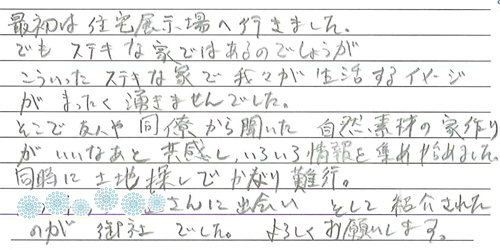 最初は住宅展示場へ行きました。
でもステキな家ではあるのでしょうが
こういったステキな家で我々が生活するイメージ
がまったく湧きませんでした。
そこで友人や同僚から聞いた自然素材の家作り
がいいなあと共感し、いろいろ情報を集め始めました。
同時に土地探しでかなり難行。
さんに出会い そして紹介された
のが御社でした。よろしくお願いします。